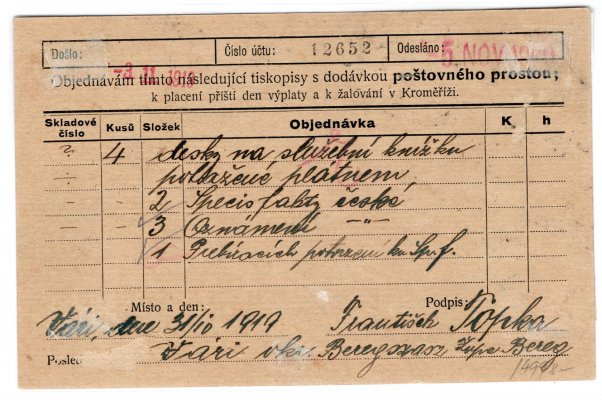 Došlo: -3. 11. 1919 Číslo účtu: 12652 Odesláno: 5. NOV. 1919
Objednávám tímto následující tiskopisy s dodávkou poštovného prostou;
k placení příští den výplaty a k žalování v Kroměříži.
Skladové číslo Kusů Složek Objednávka K h
4 desky na služební knížku
potažené plátnem
2 Speciesfakty české
3 Oznámení —"—
1 potvrzení ku Sp. f.
Místo a den: Podpis:
Vári, dne 31/10 1919 František Topka
Posled Vári okr. Beregszasz župa Bereg